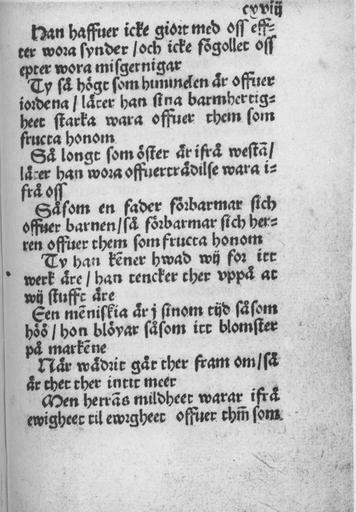 cxviij
Han haffuer icke giort med oss eff-
ter wora synder / och icke fögollet oss
epter wora misgernigar
Ty så högt som himmelen är offuer
iordena / låter han sina barmhertig-
heet starka wara offuer them som
fructa honom
Så longt som öster är ifrå westā /
låter han wora offuerträdilse wara i-
frå oss
Såsom en fader förbarmar sich
offuer barnen / så förbarmar sich her-
ren offuer them som fructa honom
Ty han kēner hwad wij for itt
werk äre / han tencker ther vppå at
wij stufft äre
Een mēniskia är j sinom tijd såsom
höö / hon blöyar såsom itt blomster
på markēne
När wädrit går ther fram om / så
är thet ther intit meer
Men herrās mildheet warar ifrå
ewigheet til ewigheet offuer thm̄ som